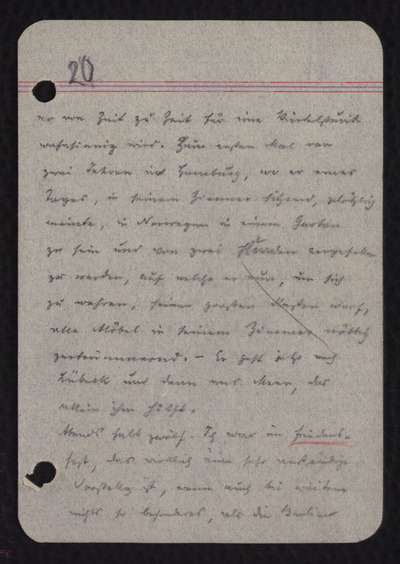 20
er von Zeit zu Zeit für eine Viertelstunde
wahnsinnig wird. Zum ersten Mal vor
zwei Jahren in Hamburg, wo er eines
Tages, in seinem Zimmer sitzend, plötzlich
meinte, in Norwegen in einem Garten
zu sein und von zwei Hunden angefallen
zu werden, auf welche er nun, um sich
zu wehren, seinen großen Kasten warf,
alle Möbel in seinem Zimmer
zertrümmernd. – Er geht jetzt nach
Lübeck und dann ans Meer, das
allein ihm hülfe.
Abends halb zwölf. Ich war im Friedens-
fest, das wirklich eine sehr anständige
Vorstellg ist, wenn auch bei weitem
nichts so besonderes, als die Berliner